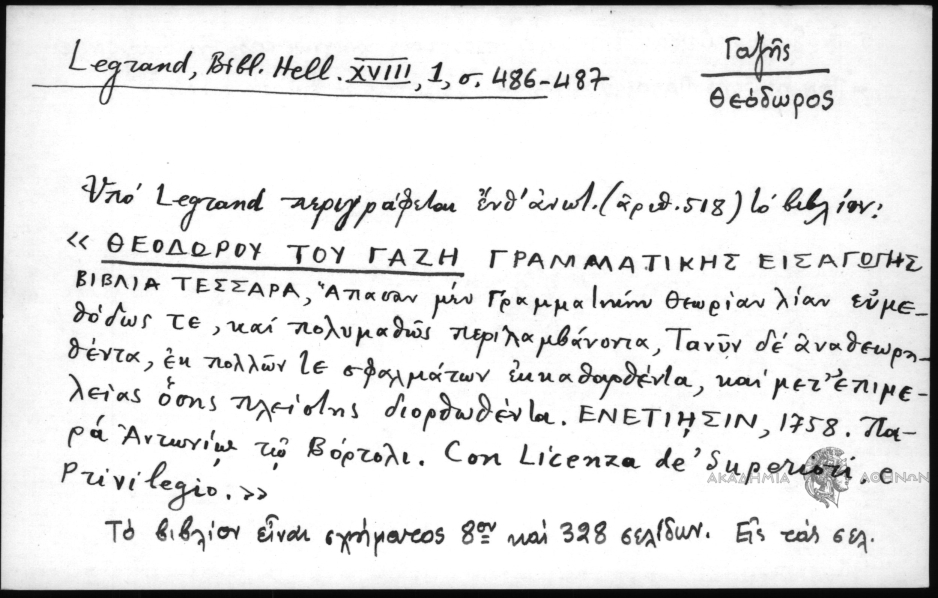 Legrand, Bibl. Hell. XVIII, 1, σ. 486-487
Γαζῆς
Θεόδωρος
Ὑπό Legrand περιγράφεται ἔνθ' ἀνωτ. (ἀριθ. 518) τό βιβλίον:
« ΘΕΟΔΩΡΟΥ ΤΟΥ ΓΑΖΗ ΓΡΑΜΜΑΤΙΚΗΣ ΕΙΣΑΓΩΓΗΣ
ΒΙΒΛΙΑ ΤΕΣΣΑΡΑ, Ἅπασαν μέν Γραμματικήν Θεωρίαν λίαν εὐμε-
θόδως τε, καί πολυμαθῶς περιλαμβάνοντα, Τανῦν δέ ἀναθεωρη-
θέντα, ἐκ πολλῶν τε σφαλμάτων ἐκκαθαρθέντα, καί μετ' ἐπιμε-
λείας ὅσης πλείστης διορθωθέντα. ΕΝΕΤΙῌΣΙΝ, 1758. Πα-
ρά Ἀντωνίῳ τῷ Βόρτολι. Con Licenza de' Superiori, e
Privilegio. »
ΑΚΑΔΗΜΙΑ ΑΘΗΝΩΝ
Τό βιβλίον εἶναι σχήματος 8ον καί 328 σελίδων. Εἰς τάς σελ.